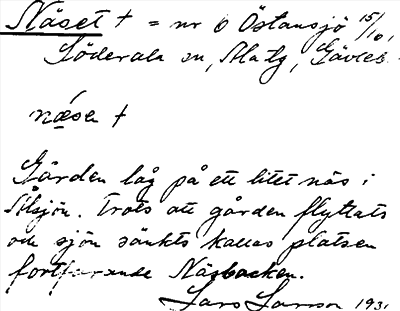 Näset † = nr 6 Östansjö 15/10,
Söderala sn, Ala tg, Gävleb.
næsa †
Gården låg på ett litet näs i
Ålsjön. Trots att gården flyttats
och sjön sänkts kallas platsen
fortfarande Näsbacken.
Lars Larsson 193